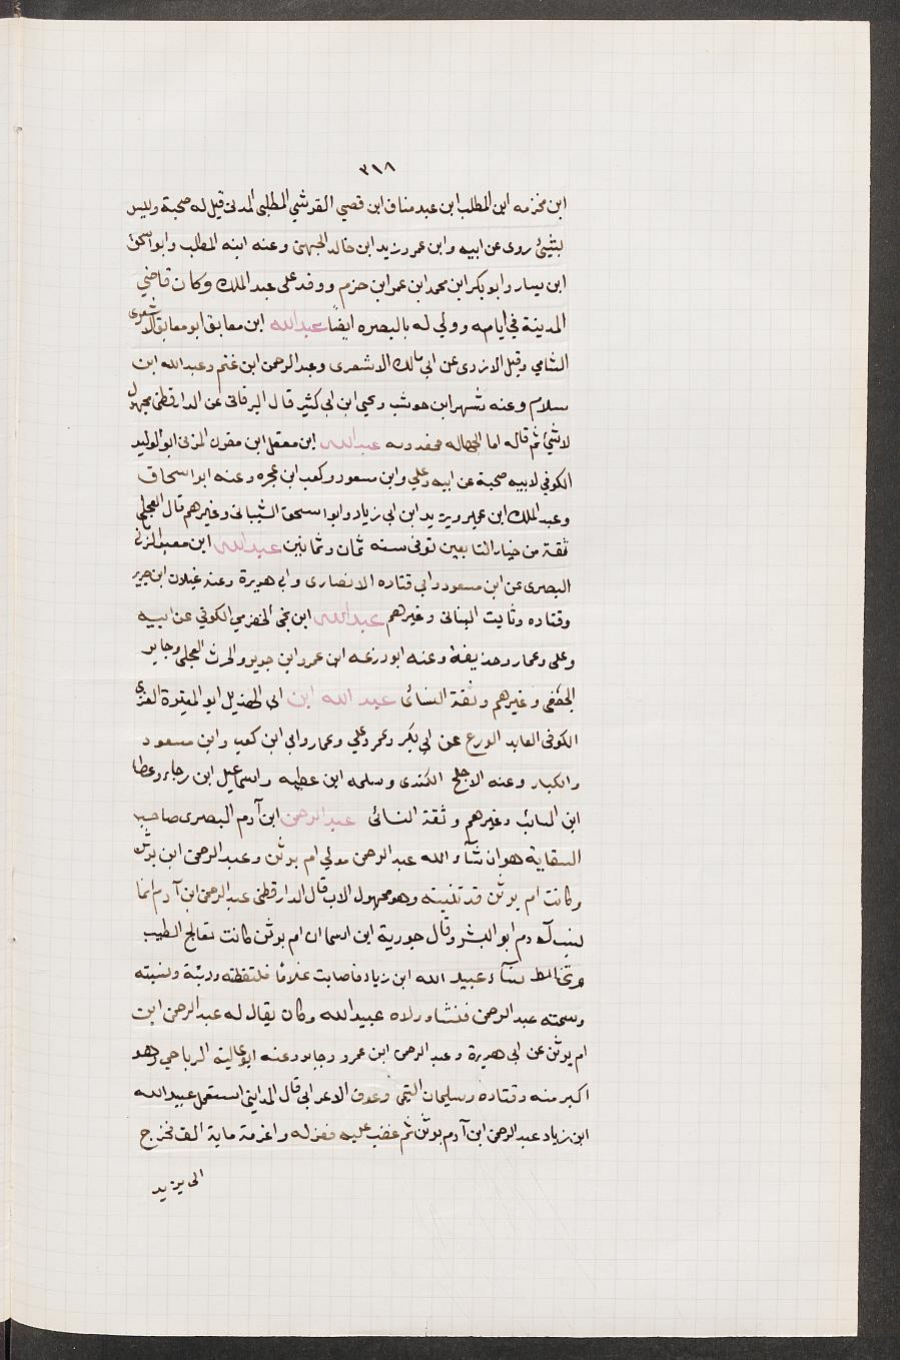 ٣١٨
ابن مخرمه ابن المطلب ابن عبد مناف ابن قصي القرشي المطلبي المدني قيل له صحبة وليس
بشيئ روى عن ابيه وابن عمر وزيد ابن خالد الجهني وعنه ابنه المطلب وابو اسحق
ابن يسار وابو بكر ابن محمد ابن عمر ابن حزم ووفد على عبد الملك وكان قاضي
المدينة في أيامه وولي له بالبصره ايضا عبد الله ابن معانق ابو معانق الاشعرى
الشامي وقيل الازدى عن ابي مالك الاشعرى وعبد الرحمن ابن غنم وعبد الله ابن
سلام وعنه شهر ابن حوشب ويحيى ابن ابي كثير قال البرقانى عن الدارقطني مجهول
لا شيئ ثم قاله اما الجهاله عبد الله ابن معقل ابن مقرن المزنى ابو الوليد
الكوفي لابيه صحبة عن ابيه وعلي وابن مسعود وكعب ابن عجره وعنه ابو اسحاق
وعبد الملك ابن عمير ويزيد ابن ابي زياد وابو اسحق الشيبانى وغيرهم قال العجلي
ثقة من خيار التابعين توفى سنه ثمان وثمانين عبد الله ابن معبد الزمانى
البصرى عن ابن مسعود وابي قتاده الانصارى وابي هريرة وعنه غيلان ابن جرير
وقتاده وثابت البنانى وغيرهم عبد الله ابن نجي الحضرمي الكوفي عن ابيه
وعلى وعمار وحذيفة وعنه ابو زرعه ابن عمرو ابن جرير والحرث العجلي وجابر
الجعفى وغيرهم وثقة النسائى عبد الله ابن ابي الهذيل ابو المغيرة العنزي
الكوفى العابد الورع عن ابي بكر وعمر وعلي وعمار وابي ابن كعب وابن مسعود
والكبار وعنه الاجلح الكندى وسلمه ابن عطيه واسماعيل ابن رجاء وعطا
ابن السائب وغيرهم وثقة النسائى عبد الرحمن ابن آدم البصرى صاحب
السقاية هو ان شآء الله عبد الرحمن مولي ام برثن وعبد الرحمن ابن برثن
وكانت ام برثن قد تبنيته وهو مجهول الاب قال الدارقطني عبد الرحمن ابن آدم انما
نسب لآدم ابو البشر وقال جورية ابن اسما ان ام برثن كانت تعالج الطيب
وتخالط نسآء عبيد الله ابن زياد فاصابت غلاما فلتقطته وربتة وتبنته
وسمته عبد الرحمن فنشا وولاه عبيد الله وكان يقال له عبد الرحمن ابن
ام برثن عن ابي هريرة وعبد الرحمن ابن عمرو وجابر وعنه ابو عالية الرياحي وهو
اكبر منه وقتاده وسليمان التيمى وعوف الاعرابى قال المداينى استعمل عبيد الله
ابن زياد عبد الرحمن ابن آدم برثن ثم غضب عليه فعزله واغرمة ماية الف فخرج
الى يزيد